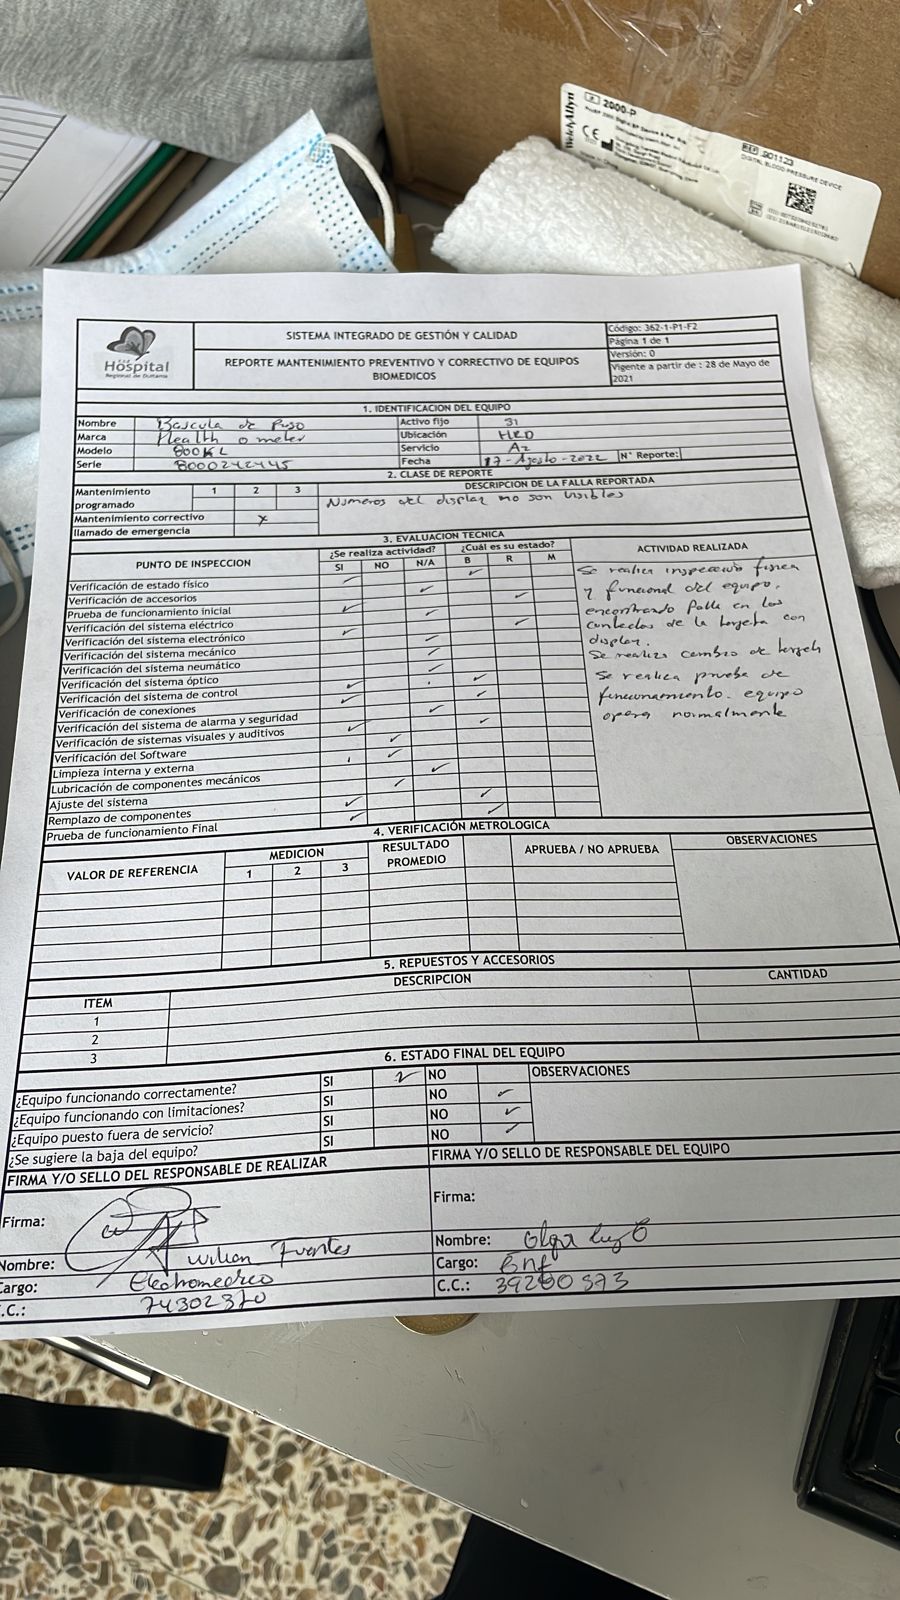 WelchAllyn
2000-P
CE
REF 901123
DIGITAL BLOOD PRESSURE DEVICE
Hospital
Regional de Duitama
SISTEMA INTEGRADO DE GESTIÓN Y CALIDAD
REPORTE MANTENIMIENTO PREVENTIVO Y CORRECTIVO DE EQUIPOS
BIOMEDICOS
Código: 362-1-P1-F2
Página 1 de 1
Versión: 0
Vigente a partir de : 28 de Mayo de
2021
1. IDENTIFICACION DEL EQUIPO
Nombre Bascula de Piso Activo fijo 31
Marca Health o meter Ubicación HRD
Modelo 800KL Servicio A2
Serie 8000242445 Fecha 17-Agosto-2022 N° Reporte:
2. CLASE DE REPORTE
Mantenimiento
programado 1 2 3
Mantenimiento correctivo x
llamado de emergencia
DESCRIPCION DE LA FALLA REPORTADA
Numeros del display no son visibles
3. EVALUACION TECNICA
PUNTO DE INSPECCION ¿Se realiza actividad? ¿Cuál es su estado? ACTIVIDAD REALIZADA
SI NO N/A B R M
Verificación de estado físico
Verificación de accesorios
Prueba de funcionamiento inicial
Verificación del sistema eléctrico
Verificación del sistema electrónico
Verificación del sistema mecánico
Verificación del sistema neumático
Verificación del sistema óptico
Verificación del sistema de control
Verificación de conexiones
Verificación del sistema de alarma y seguridad
Verificación de sistemas visuales y auditivos
Verificación del Software
Limpieza interna y externa
Lubricación de componentes mecánicos
Ajuste del sistema
Remplazo de componentes
Prueba de funcionamiento Final
Se realiza inspección fisica
y funcional del equipo,
encontrando falla en los
contactos de la tarjeta con
display.
Se realiza cambio de tarjeta
Se realiza prueba de
funcionamiento. equipo
opera normalmente
4. VERIFICACIÓN METROLOGICA
VALOR DE REFERENCIA MEDICION RESULTADO PROMEDIO APRUEBA / NO APRUEBA OBSERVACIONES
1 2 3
5. REPUESTOS Y ACCESORIOS
ITEM DESCRIPCION CANTIDAD
1
2
3
6. ESTADO FINAL DEL EQUIPO
¿Equipo funcionando correctamente? SI NO OBSERVACIONES
¿Equipo funcionando con limitaciones? SI NO
¿Equipo puesto fuera de servicio? SI NO
¿Se sugiere la baja del equipo? SI NO
FIRMA Y/O SELLO DEL RESPONSABLE DE REALIZAR
Firma:
Nombre: Wilian Fuentes
Cargo: Electromedico
C.C.: 74302370
FIRMA Y/O SELLO DE RESPONSABLE DEL EQUIPO
Firma:
Nombre: Olga Luz
Cargo: Enf
C.C.: